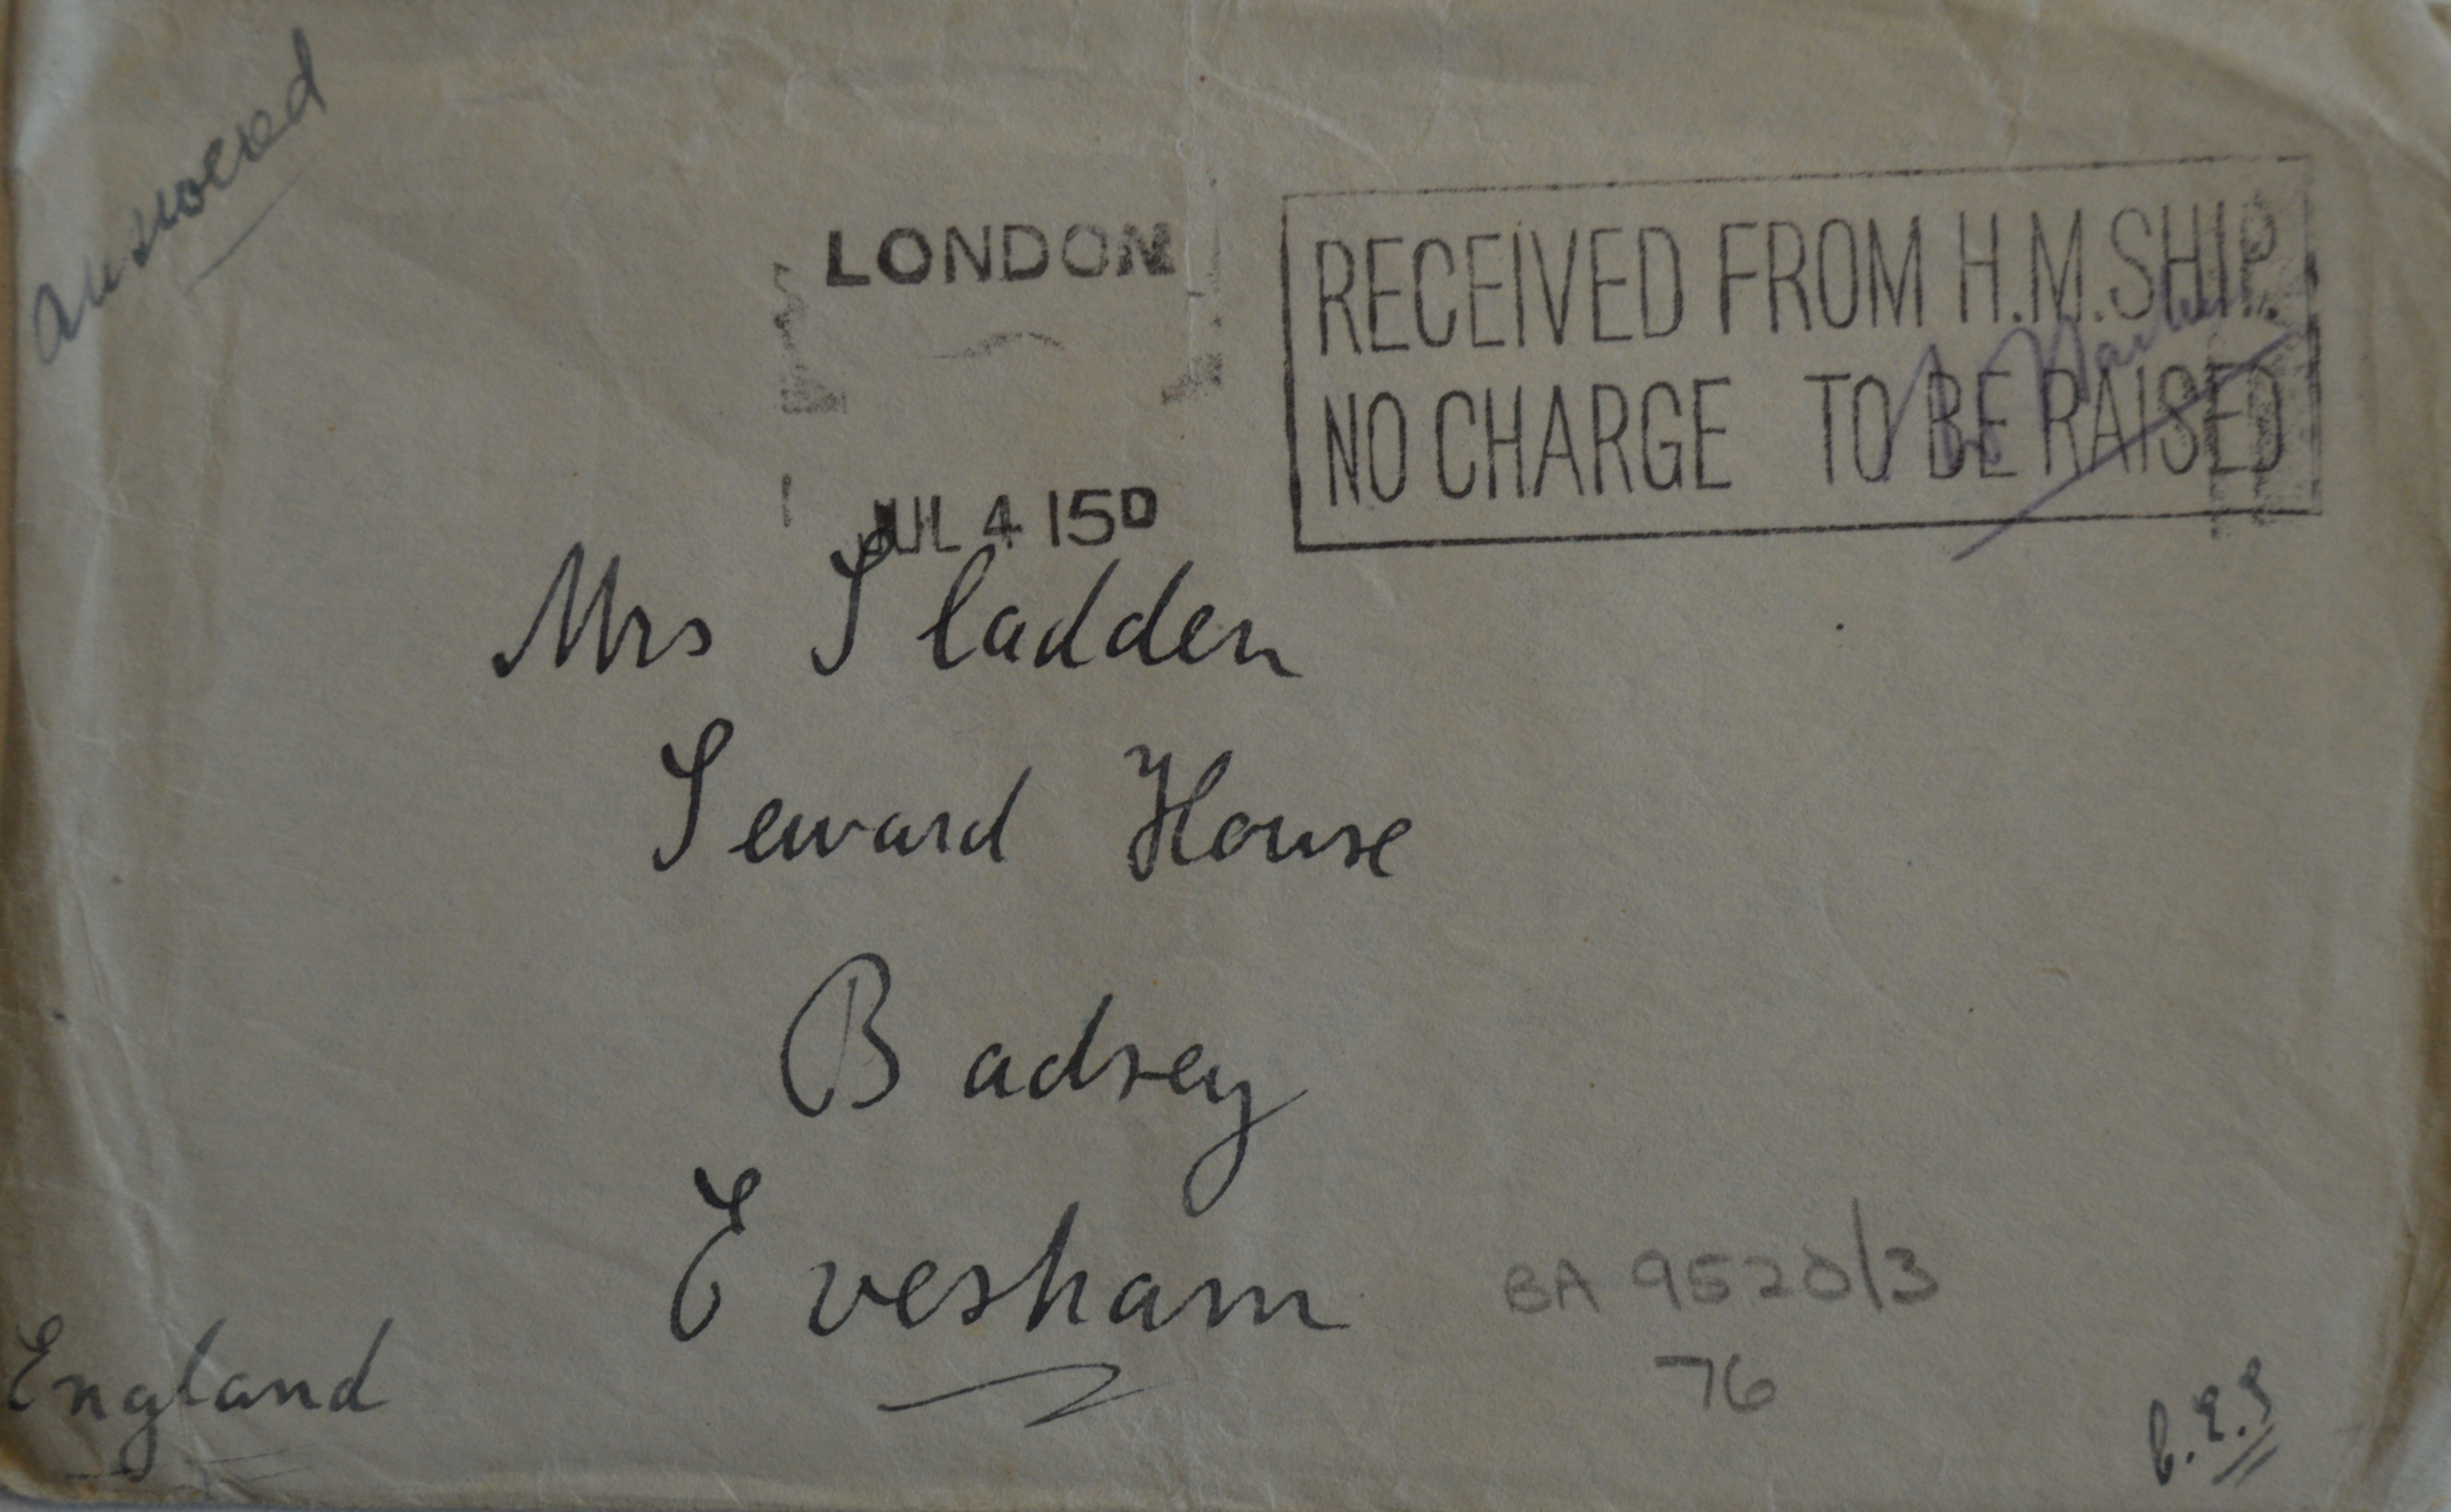 answered
LONDON
JUL 4 15D
RECEIVED FROM H.M.SHIP.
NO CHARGE TO BE RAISED
Mrs Sladden
Seward House
Badsey
Evesham
England
BA 9520/3
76
C.E.S